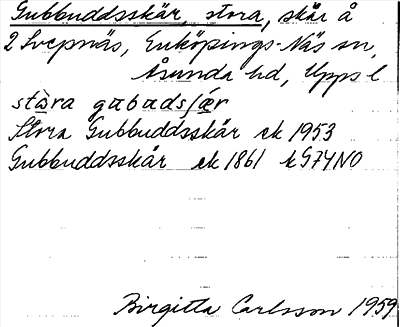 Gubbuddsskär, stora, skär å
2 Svepnäs, Enköpings-Näs sn,
Åsunda hd, Upps l
stɔ̀ra gɑbɑdsʃæ̀r
Stora Gubbuddsskär ek 1953
Gubbuddsskär ek 1861 hG74NO
Birgitta Carlsson 1959